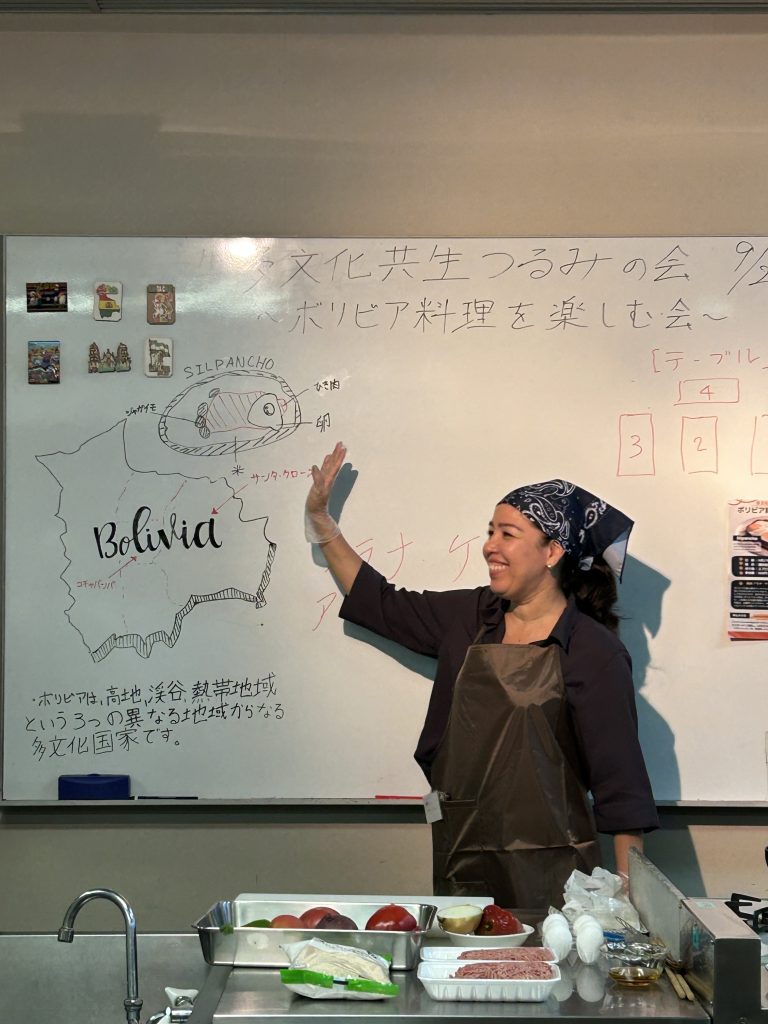 多文化共生つるみの会 9/2
～ボリビア料理を楽しむ会～
SILPANCHO
ひき肉
ジャガイモ
卵
[テーブル
4
3
2
サンタ・クロー
Bolivia
コチャバンバ
ラナ・ケ
ア
ボリビ
・ボリビアは、高地、渓谷、熱帯地域
という3つの異なる地域からなる
多文化国家です。